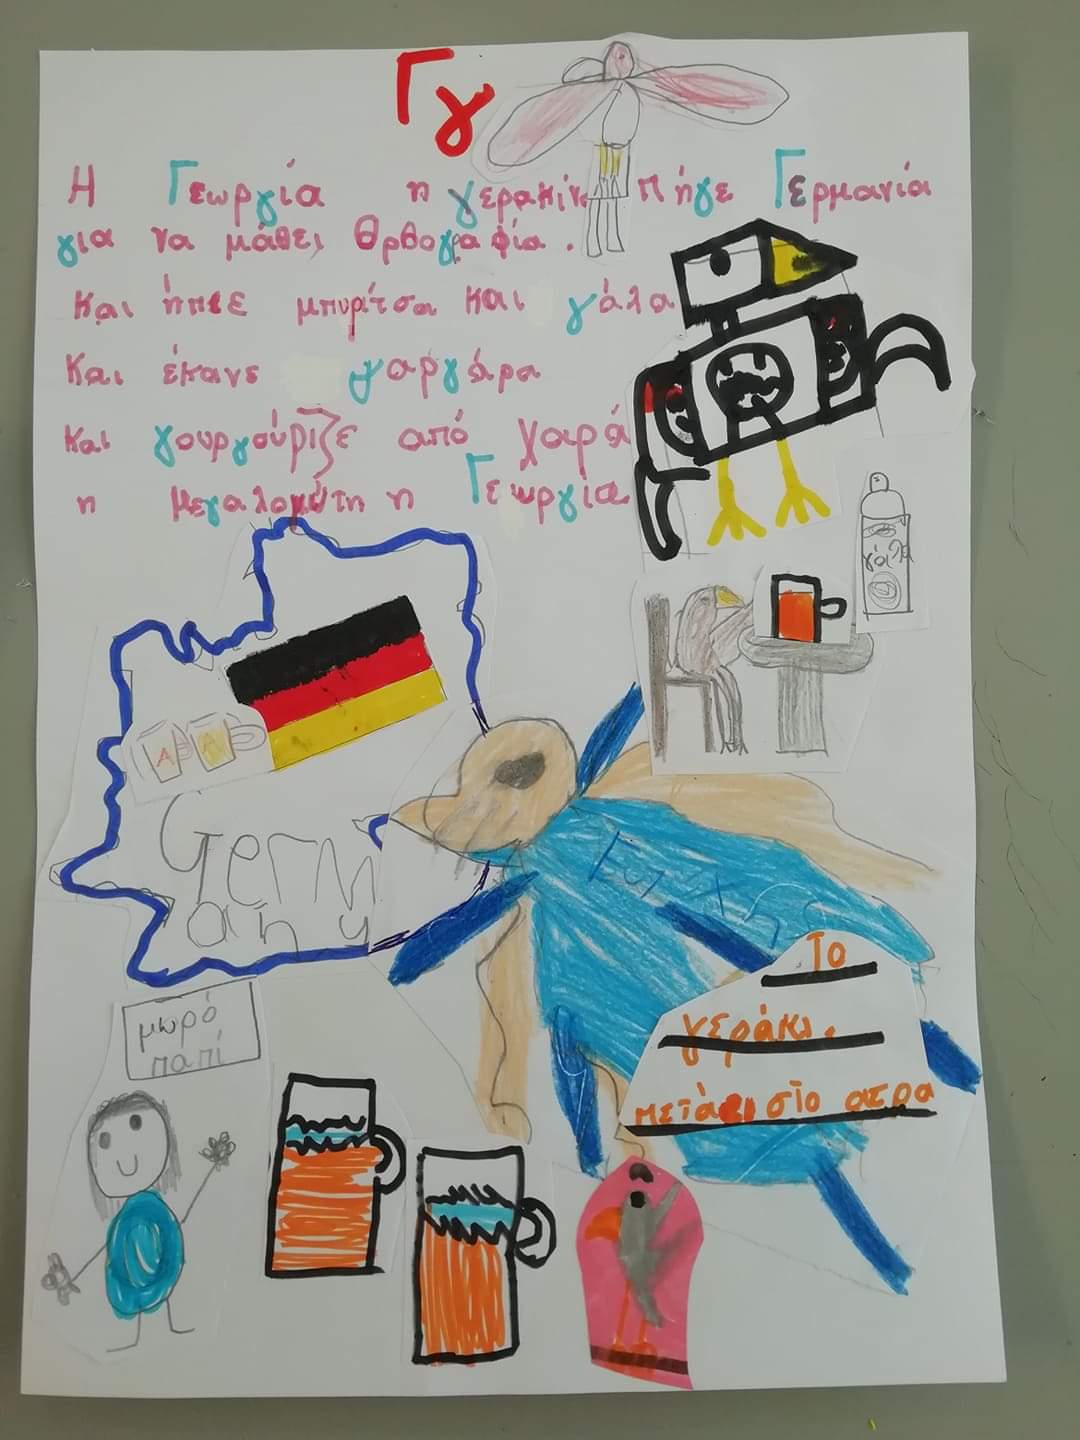 Γγ
Η Γεωργία η γερακίν πήγε Γερμανία
για να μάθει Θρθογραφία.
και ήπιε μπυρίτσα και γάλα
και έκανε γαργάρα
και γουργούριζε από χαρά
η μεγαλομύτη η Γεωργία
γάλα
A A
Germ
any
Το
γεράκι
πετάει στο αερα
μωρό
παπί